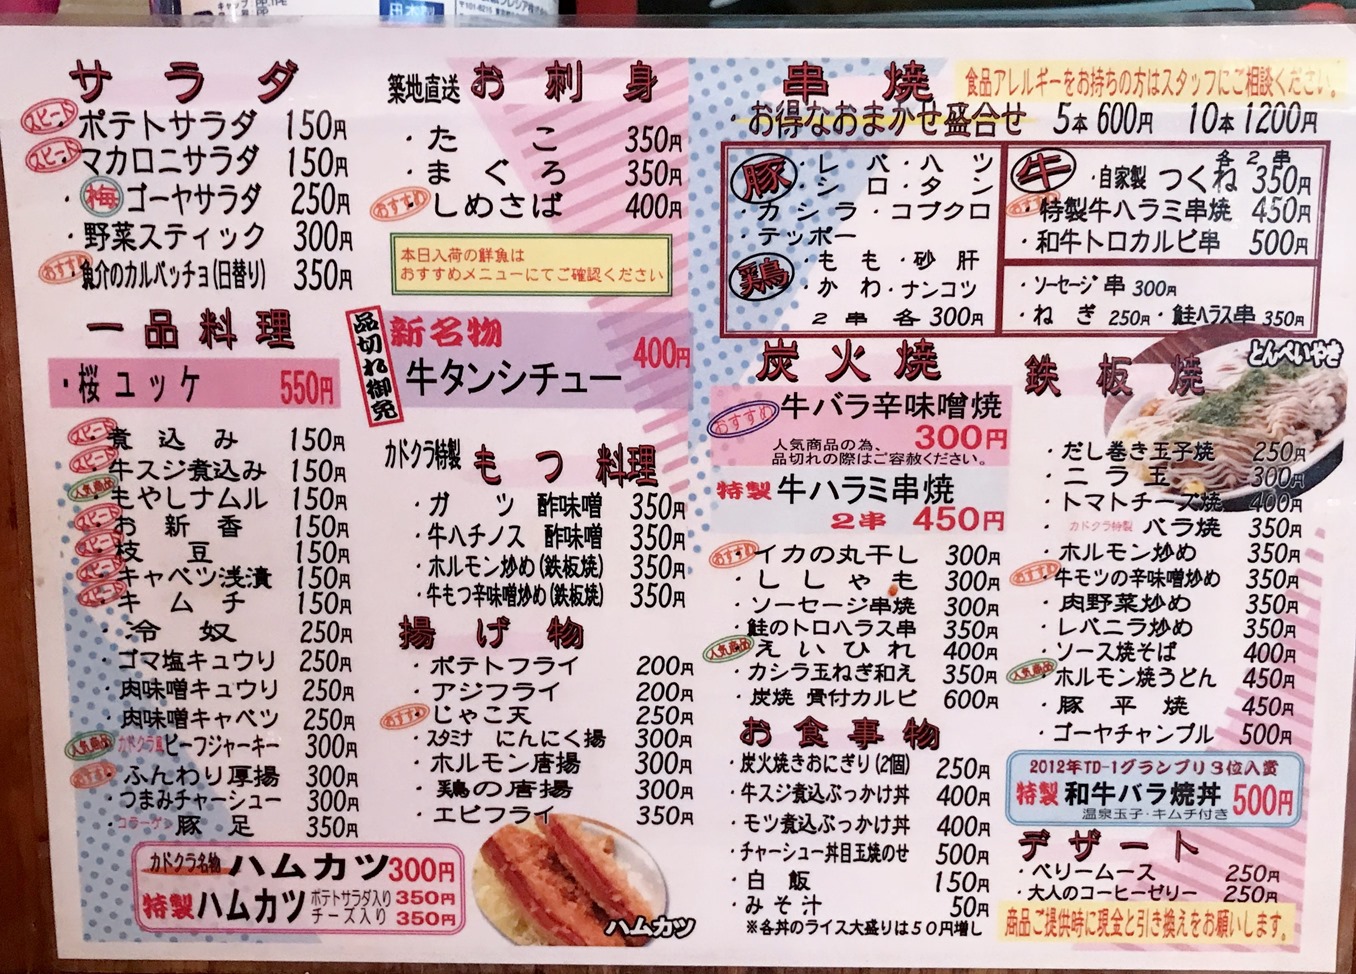 サラダ
スピード ポテトサラダ 150円
スピード マカロニサラダ 150円
・梅ゴーヤサラダ 250円
・野菜スティック 300円
おすすめ ・魚介のカルパッチョ(日替り) 350円
一品料理
・桜ユッケ 550円
スピード ・煮込み 150円
スピード ・牛スジ煮込み 150円
人気商品 ・もやしナムル 150円
スピード ・お新香 150円
スピード ・枝豆 150円
スピード ・キャベツ浅漬 150円
スピード ・キムチ 150円
・冷奴 250円
・ゴマ塩キュウリ 250円
・肉味噌キュウリ 250円
・肉味噌キャベツ 250円
人気商品 ・カドクラ風ビーフジャーキー 300円
おすすめ ・ふんわり厚揚 300円
・つまみチャーシュー 300円
・コラーゲン 豚足 350円
カドクラ名物 ハムカツ 300円
特製ハムカツ ポテトサラダ入り 350円
チーズ入り 350円
築地直送 お刺身
・たこ 350円
・まぐろ 350円
おすすめ ・しめさば 400円
本日入荷の鮮魚は
おすすめメニューにてご確認ください
品切れ御免
新名物
牛タンシチュー 400円
カドクラ特製 もつ料理
・ガツ 酢味噌 350円
・牛ハチノス 酢味噌 350円
・ホルモン炒め(鉄板焼) 350円
・牛もつ辛味噌炒め(鉄板焼) 350円
揚げ物
・ポテトフライ 200円
・アジフライ 200円
おすすめ ・じゃこ天 250円
・スタミナ にんにく揚 300円
・ホルモン唐揚 300円
・鶏の唐揚 300円
・エビフライ 350円
ハムカツ
串焼
食品アレルギーをお持ちの方はスタッフにご相談ください。
・お得なおまかせ盛合せ 5本600円 10本1200円
豚 ・レバ・ハツ
・シロ・タン
・カシラ・コブクロ
・テッポー
鶏 ・もも・砂肝
・かわ・ナンコツ
2串各300円
牛 各2串
・自家製 つくね 350円
おすすめ ・特製牛ハラミ串焼 450円
・和牛トロカルビ串 500円
・ソーセージ串 300円
・ねぎ 250円・鮭ハラス串 350円
炭火焼
おすすめ 牛バラ辛味噌焼
300円
人気商品の為、
品切れの際はご容赦ください。
特製 牛ハラミ串焼
2串 450円
おすすめ ・イカの丸干し 300円
・ししゃも 300円
・ソーセージ串焼 300円
・鮭のトロハラス串 350円
人気商品 ・えいひれ 400円
・カシラ玉ねぎ和え 350円
・炭焼 骨付カルビ 600円
お食事物
・炭火焼きおにぎり(2個) 250円
・牛スジ煮込ぶっかけ丼 400円
・モツ煮込ぶっかけ丼 400円
・チャーシュー丼目玉焼のせ 500円
・白飯 150円
・みそ汁 50円
※各丼のライス大盛りは50円増し
鉄板焼
とんぺいやき
・だし巻き玉子焼 250円
・ニラ玉 300円
・トマトチーズ焼 400円
・カドクラ特製 バラ焼 350円
・ホルモン炒め 350円
おすすめ ・牛モツの辛味噌炒め 350円
・肉野菜炒め 350円
・レバニラ炒め 350円
・ソース焼そば 400円
人気商品 ・ホルモン焼うどん 450円
・豚平焼 450円
・ゴーヤチャンプル 500円
2012年TD-1グランプリ3位入賞
特製 和牛バラ焼丼 500円
温泉玉子・キムチ付き
デザート
・ベリームース 250円
・大人のコーヒーゼリー 250円
商品ご提供時に現金と引き換えをお願いします。